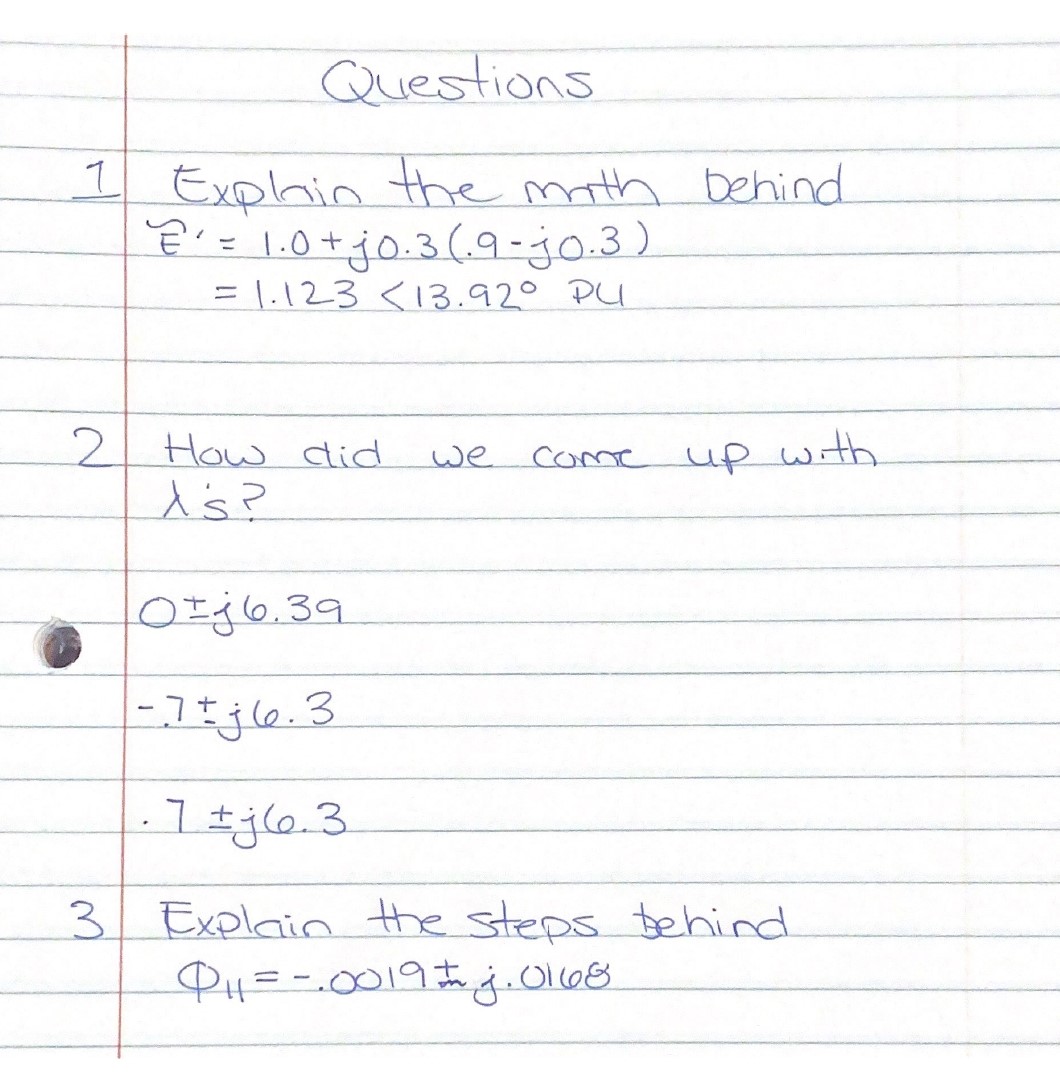 Questions
1 Explain the math behind
Ẽ' = 1.0 + j0.3(.9 - j0.3)
= 1.123 <13.92° PU
2 How did we come up with
λ's?
0 ± j6.39
-.7 ± j6.3
.7 ± j6.3
3 Explain the steps behind
Φ11 = -.0019 ± j.0168